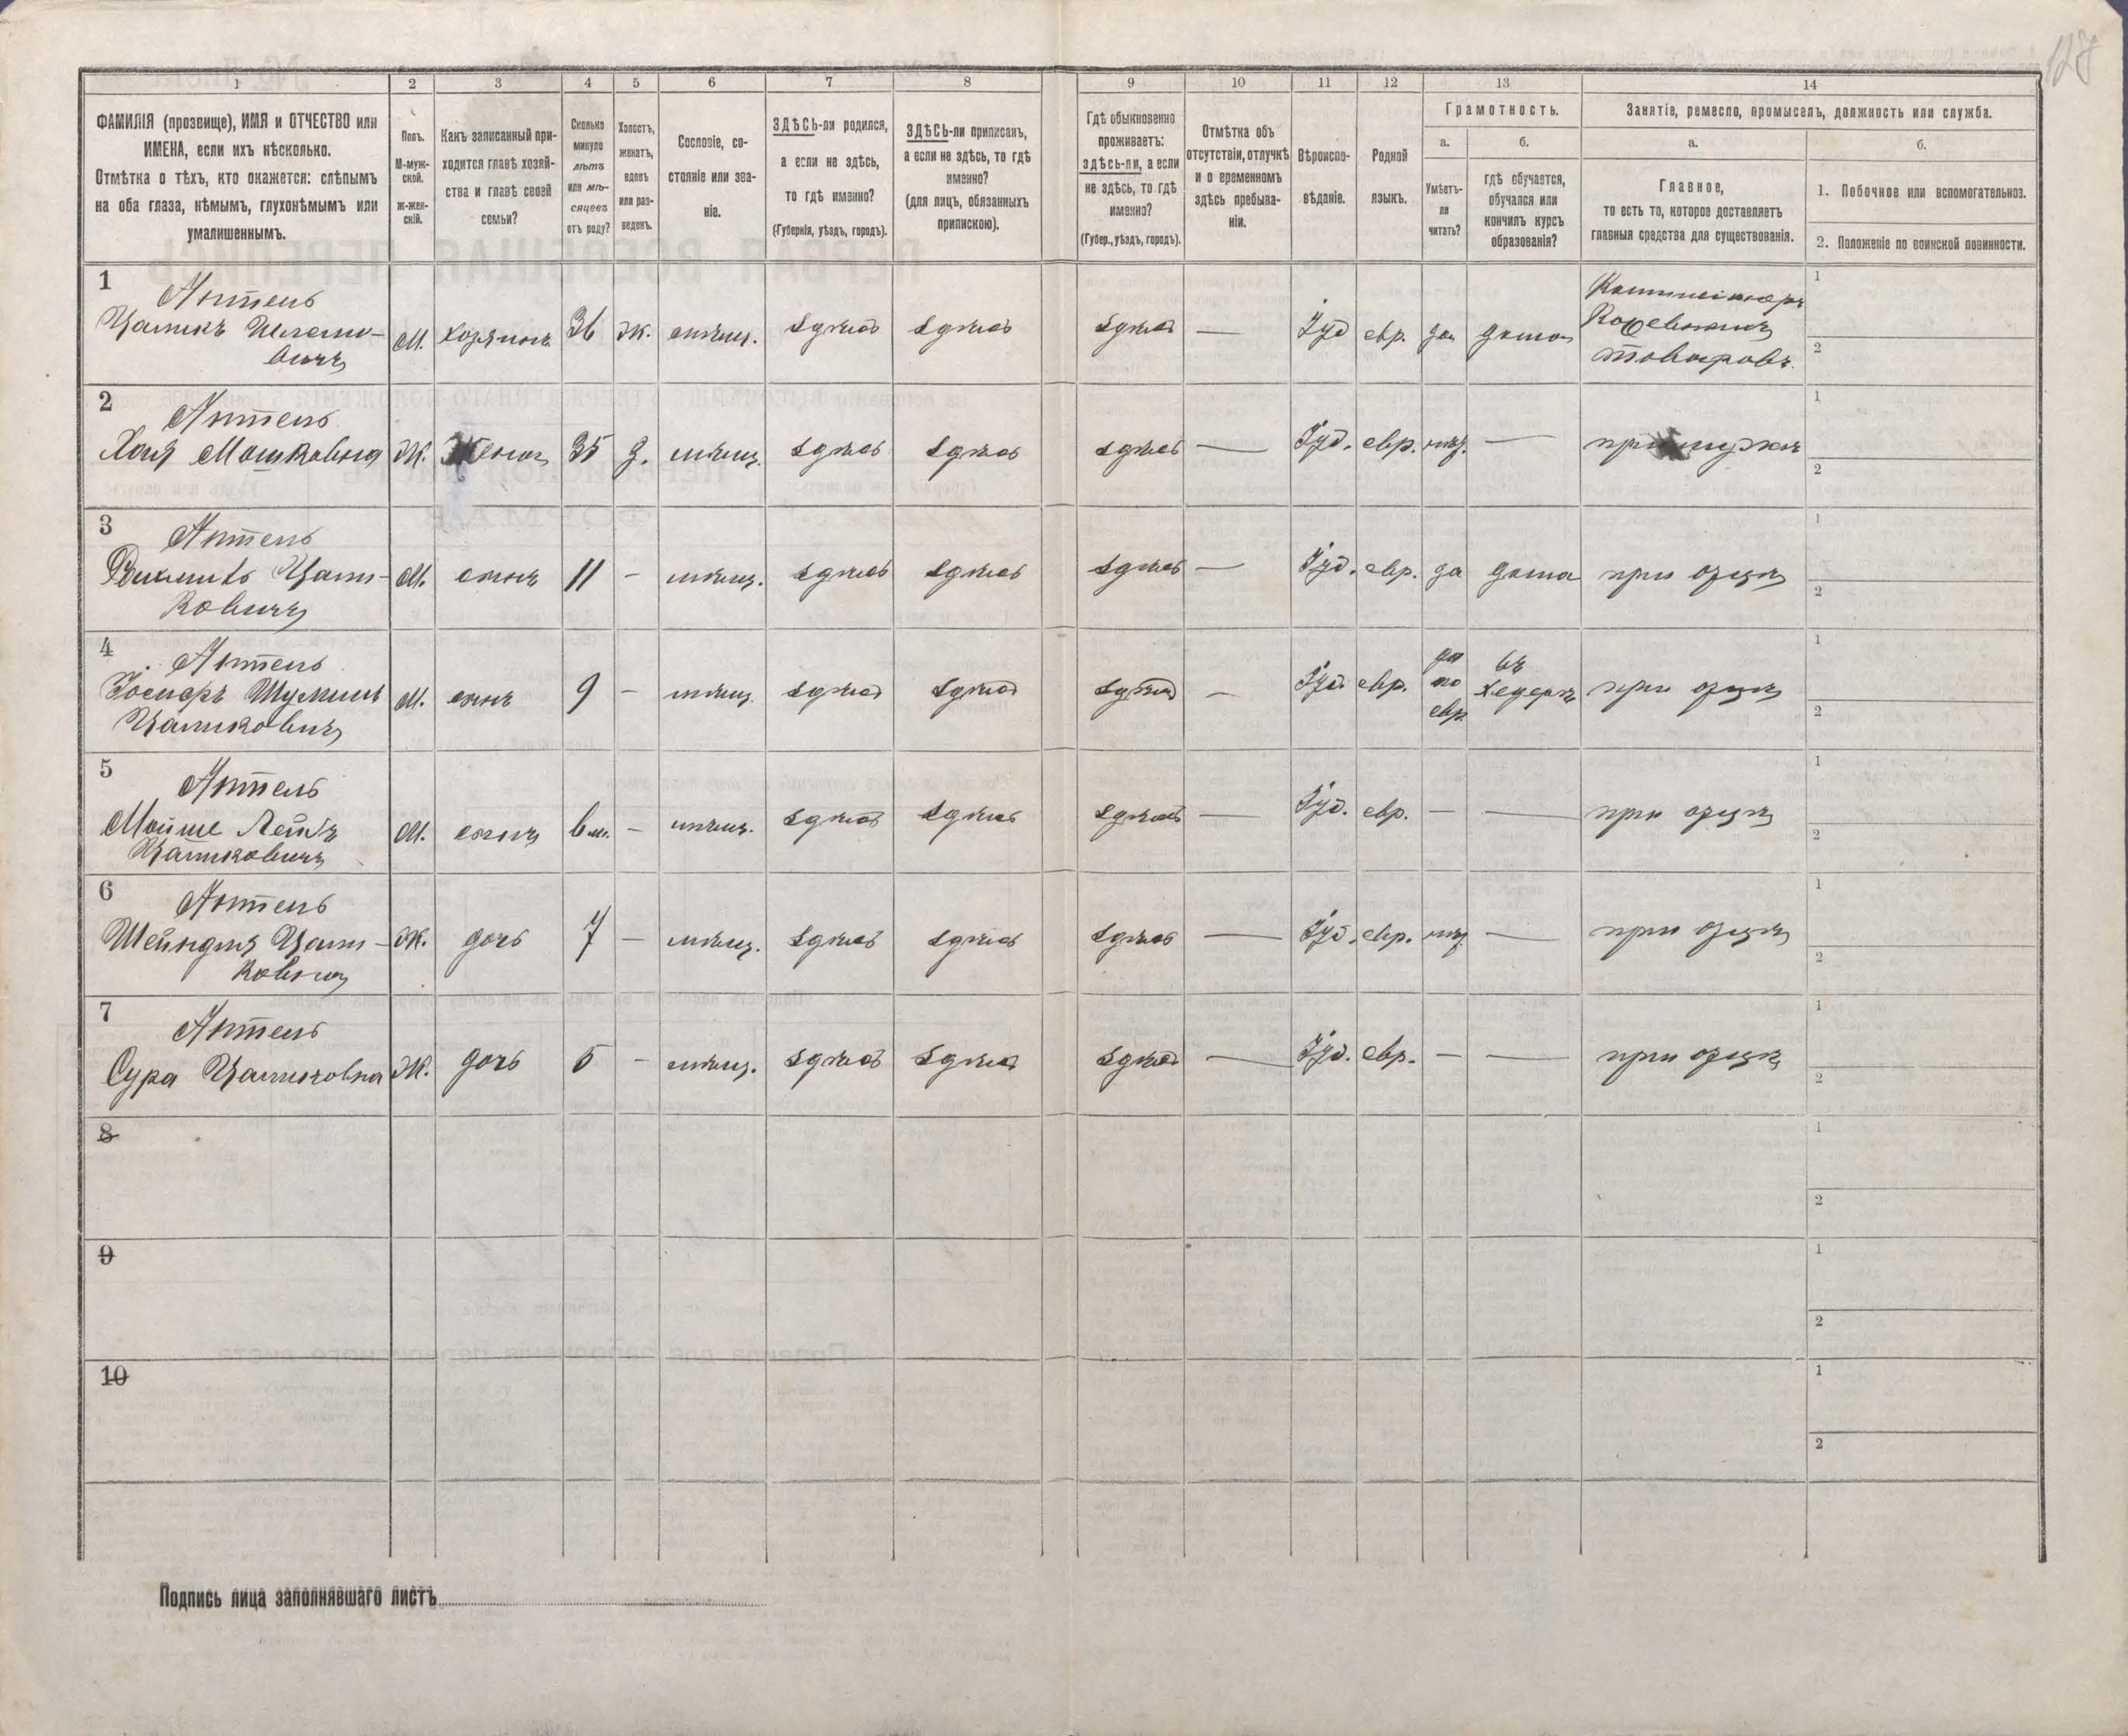 128
1
2
3
4
5
6
7
8
9
10
11
12
13
14
ФАМИЛІЯ (прозвище), ИМЯ и ОТЧЕСТВО или
ИМЕНА, если ихъ нѣсколько.
Отмѣтка о тѣхъ, кто окажется: слѣпымъ
на оба глаза, нѣмымъ, глухонѣмымъ или
умалишеннымъ.
Полъ.
М-муж-
ской.
Ж-жен-
скій.
Какъ записанный при-
ходится главѣ хозяй-
ства и главѣ своей
семьи?
Сколько
минуло
лѣтъ
или мѣ-
сяцевъ
отъ роду?
Холостъ,
женатъ,
вдовъ
или раз-
веденъ.
Сословіе, со-
стояніе или зва-
ніе.
ЗДѢСЬ-ли родился,
а если не здѣсь,
то гдѣ именно?
(Губернія, уѣздъ, городъ).
ЗДѢСЬ-ли приписанъ,
а если не здѣсь, то гдѣ
именно?
(для лицъ, обязанныхъ
припискою).
Гдѣ обыкновенно
проживаетъ:
здѣсь-ли, а если
не здѣсь, то гдѣ
именно?
(Губер., уѣздъ, городъ).
Отмѣтка объ
отсутствіи, отлучкѣ
и о временномъ
здѣсь пребыва-
ніи.
Вѣроиспо-
вѣданіе.
Родной
языкъ.
Грамотность.
а.
Умѣетъ-
ли
читать?
б.
гдѣ обучается,
обучался или
кончилъ курсъ
образованія?
Занятіе, ремесло, промыселъ, должность или служба.
а.
Главное,
то есть то, которое доставляетъ
главныя средства для существованія.
б.
1. Побочное или вспомогательное.
2. Положеніе по воинской повинности.
1
Антель
Цаликъ Шлемо-
вичъ
М. хозяинъ 36 Ж. мѣщ. здѣсь здѣсь здѣсь — Іуд евр. да дома
Коммисіонеръ
Кожевенныхъ
товаровъ.
1
2
2
Антель
Хая Мошковна Ж. Жена 35 З. мѣщ. здѣсь здѣсь здѣсь — Іуд. евр. нѣт. — при мужѣ
1
2
3
Антель
Цали-
ковичъ
М. сынъ 11 — мѣщ. здѣсь здѣсь здѣсь — Іуд. евр. да дома при отцѣ
1
2
4
Антель
Цаликовичъ
М. сынъ 9 — мѣщ. здѣсь здѣсь здѣсь — Іуд. евр. да по евр. въ хедерѣ при отцѣ
1
2
5
Антель
Мойше Лейбъ
Цаликовичъ
М. сынъ 6 м. — мѣщ. здѣсь здѣсь здѣсь — Іуд. евр. — — при отцѣ
1
2
6
Антель
Шейндля Цали-
ковна
Ж. дочь 7 — мѣщ. здѣсь здѣсь здѣсь — Іуд. евр. нѣт. — при отцѣ
1
2
7
Антель
Сура Цаликовна Ж. дочь 5 — мѣщ. здѣсь здѣсь здѣсь — Іуд. евр. — — при отцѣ
1
2
8
1
2
9
1
2
10
1
2
Подпись лица заполнявшаго листъ